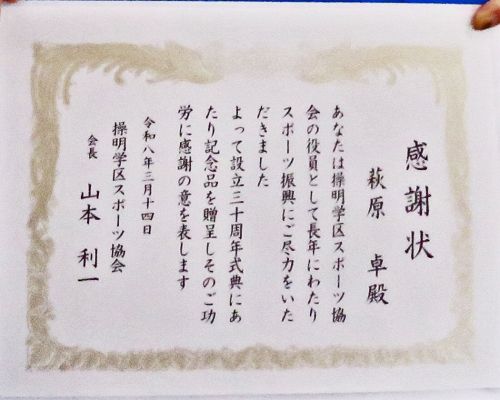 感謝状
萩原 卓殿
あなたは操明学区スポーツ協
会の役員として長年にわたり
スポーツ振興にご尽力をいた
だきました
よって設立三十周年式典にあ
たり記念品を贈呈しそのご功
労に感謝の意を表します
令和八年三月十四日
操明学区スポーツ協会
会長 山本 利一